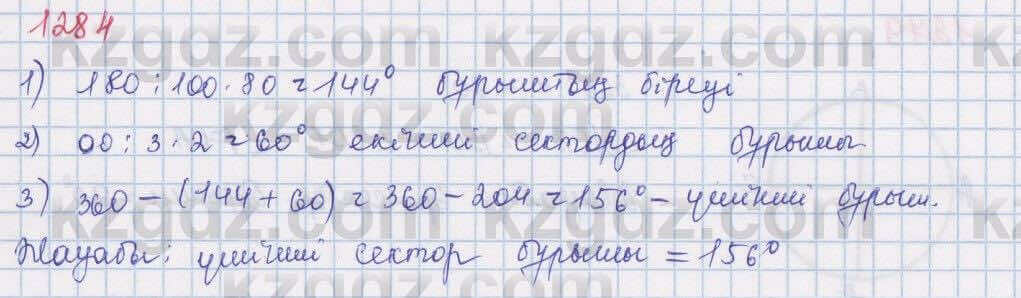 1284
1) 180 : 100 · 80 = 144° бұрыштың біреуі
2) 90 : 3 · 2 = 60° екінші сектордың бұрышы
3) 360 - (144 + 60) = 360 - 204 = 156° - үшінші бұрыш.
Жауабы: үшінші сектор бұрышы = 156°
kzgdz.com